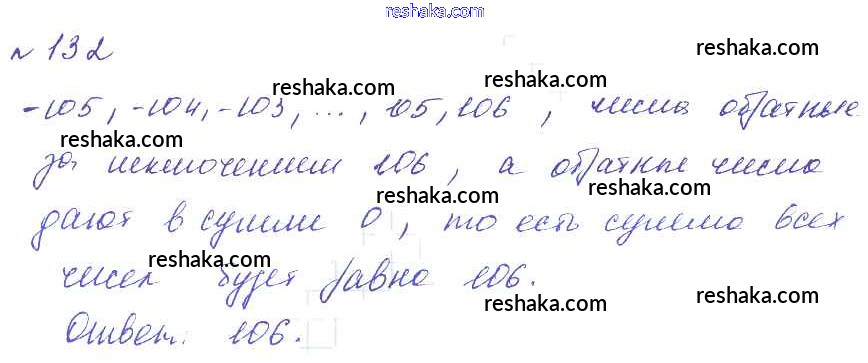 reshaka.com
№ 132
reshaka.com
reshaka.com reshaka.com reshaka.com
-105, -104, -103, ..., 105, 106, числа обратные
reshaka.com
за исключением 106, а обратные числа
reshaka.com reshaka.com
дают в сумме 0, то есть сумма всех
reshaka.com reshaka.com
чисел будет равна 106.
reshaka.com reshaka.com
Ответ: 106.
reshaka.com